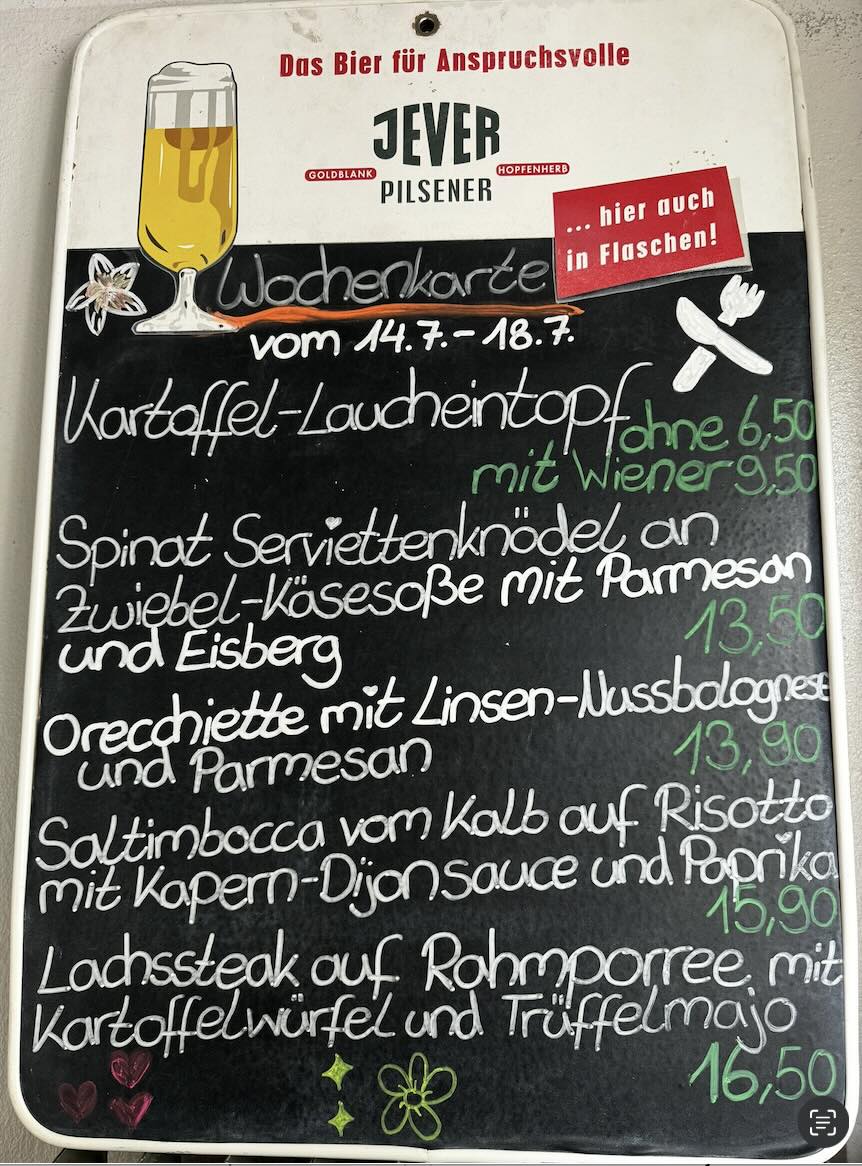 Das Bier für Anspruchsvolle
JEVER
GOLDBLANK HOPFENHERB
PILSENER
... hier auch
in Flaschen!
Wochenkarte
vom 14.7.-18.7.
Kartoffel-Laucheintopf ohne 6,50
mit Wiener 9,50
Spinat Serviettenknödel an
Zwiebel-Käsesoße mit Parmesan
und Eisberg 13,50
Orecchiette mit Linsen-Nussbolognese
und Parmesan 13,90
Saltimbocca vom Kalb auf Risotto
mit Kapern-Dijonsauce und Paprika
15,90
Lachssteak auf Rahmporree mit
Kartoffelwürfel und Trüffelmajo
16,50